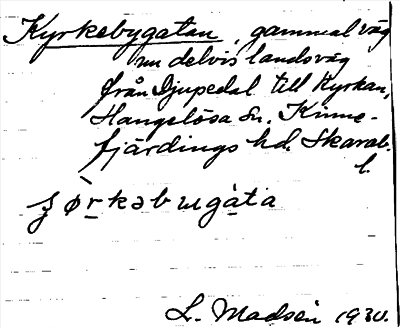 Kyrkebygatan, gammal väg
nu delvis landsväg
från Djupedal till Kyrkan,
Hangelösa sn. Kinne-
fjärdings hd. Skarab.
l.
ʒørkəbɯgàta
L. Madsén 1930.